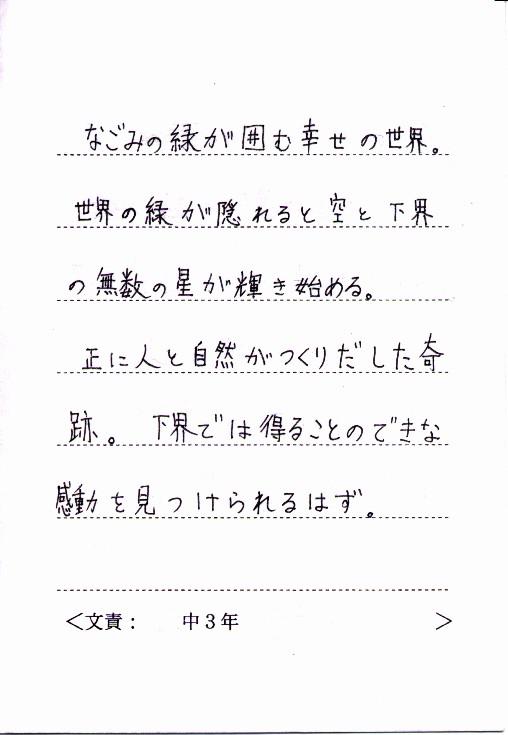 なごみの緑が囲む幸せの世界。
世界の緑が隠れると空と下界
の無数の星が輝き始める。
正に人と自然がつくりだした奇
跡。下界では得ることのできな
感動を見つけられるはず。
＜文責： 中３年 ＞